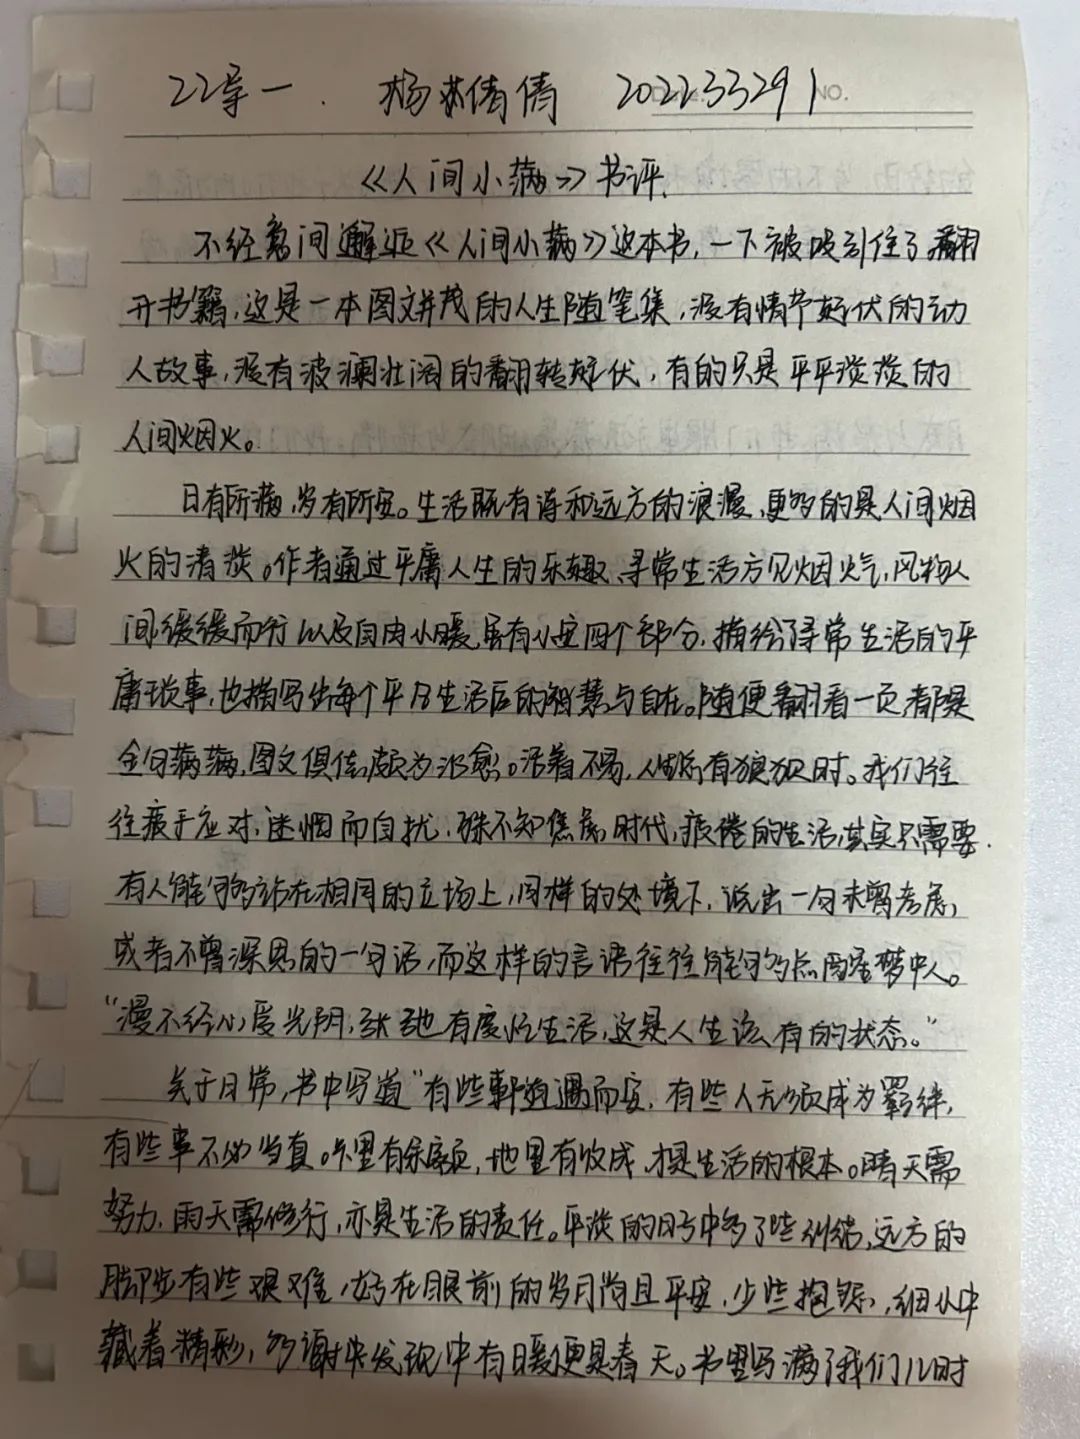 22导一. 杨洪倩倩 202233291
NO.
《人间小满》书评.
不经意间邂逅《人间小满》这本书,一下被吸引住了翻
开书籍,这是一本图文并茂的人生随笔集,没有情节起伏的动
人故事,没有波澜壮阔的翻转起伏,有的只是平平淡淡的
人间烟火。
日有所满,岁有所安。生活既有诗和远方的浪漫,更多的是人间烟
火的清淡。作者通过平庸人生的乐趣、寻常生活方见烟火气,风物人
间缓缓而行以及自由小暖,自有小安四个部分,描绘了寻常生活的平
庸琐事,也描写出每个平凡生活后的智慧与自在。随便翻看一页,都是
金句满满,图文俱佳,颇为治愈。活着不易,人生总有狼狈时。我们往
往疲于应对,迷惘而自扰,殊不知焦虑时代,疲倦的生活,其实只需要
有人能够站在相同的立场上,同样的处境下,说出一句未曾考虑,
或者不曾深思的一句话,而这样的言语往往能够点醒梦中人。
“漫不经心度光阴,张弛有度行生活,这是人生该有的状态。”
关于日常,书中写道“有些事随遇而安,有些人无须成为羁绊,
有些事不必当真。卡里有余额,地里有收成,才是生活的根本。晴天需
努力,雨天需修行,亦是生活的责任。平淡的日子中多了些纠结,远方的
脚步有些艰难,好在眼前的岁月尚且平安,少些抱怨,细水中
藏着精彩,多谢中发现中有暖便是春天。书里写满了我们儿时